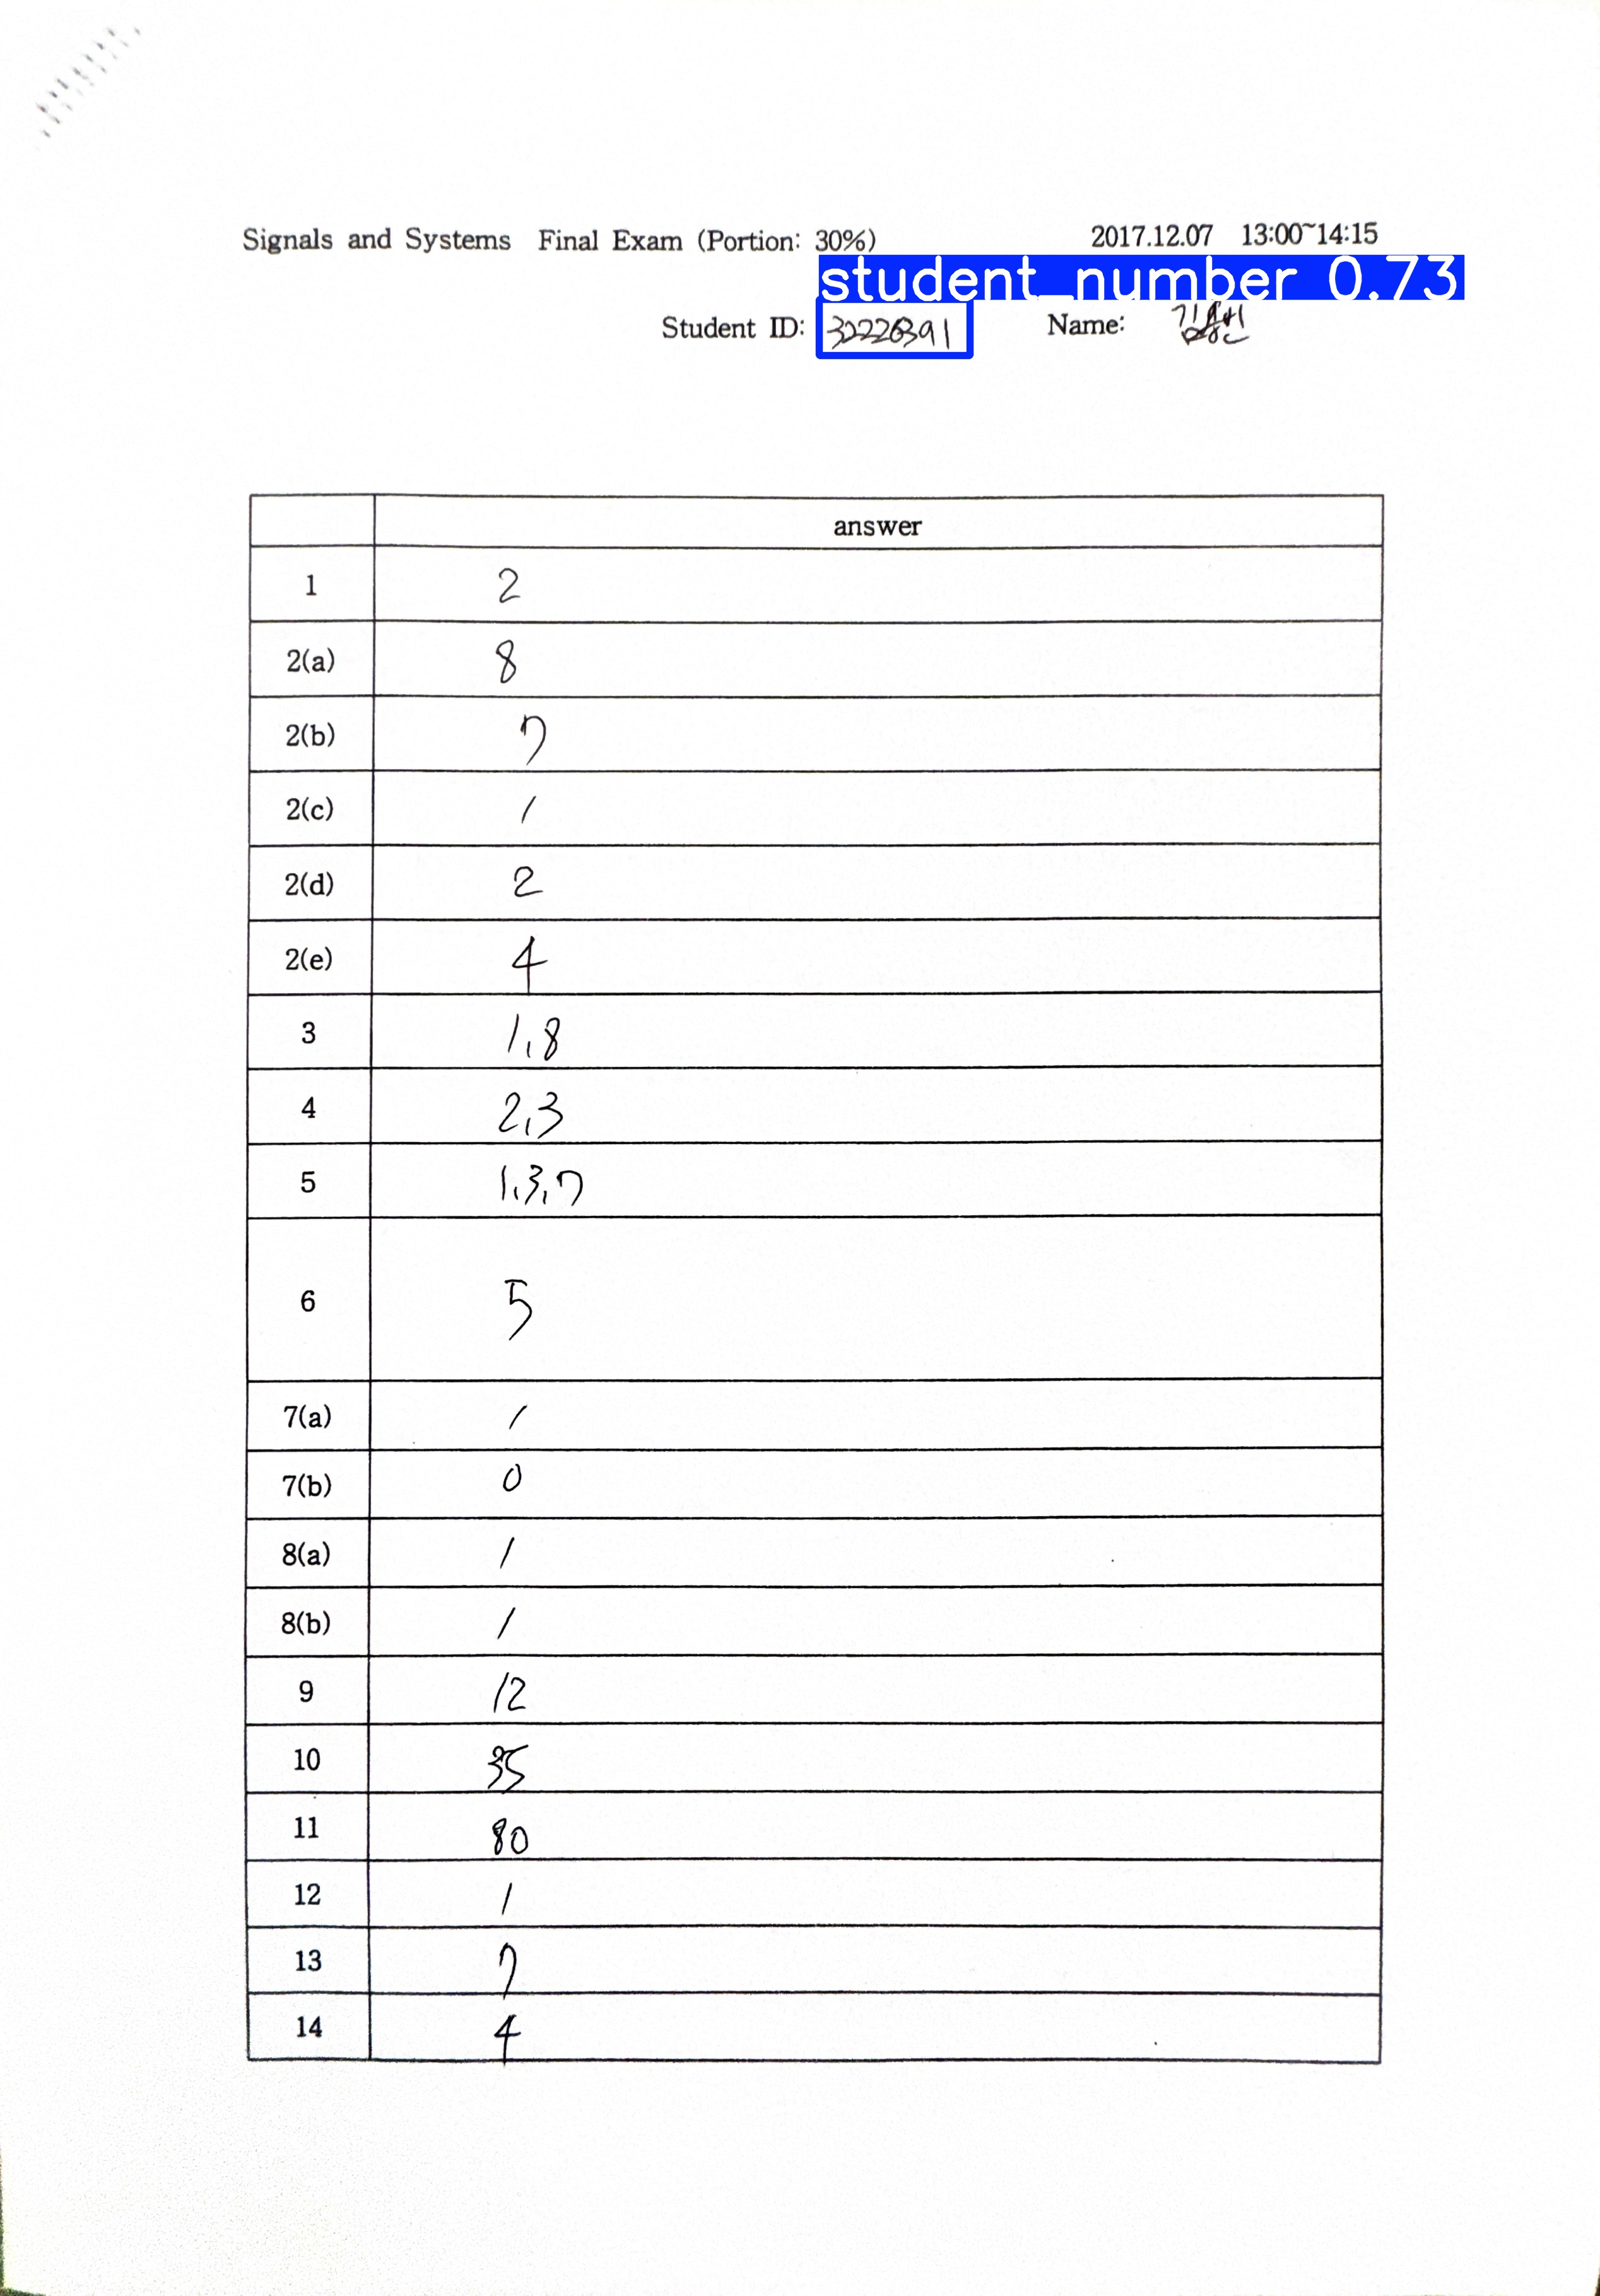 Signals and Systems Final Exam (Portion: 30%) 2017.12.07 13:00~14:15
student_number 0.73
Student ID: 32226391 Name:
answer
1 2
2(a) 8
2(b) 7
2(c) 1
2(d) 2
2(e) 4
3 1,8
4 2,3
5 1,3,7
6 5
7(a) 1
7(b) 0
8(a) 1
8(b) 1
9 12
10 35
11 80
12 1
13 7
14 4